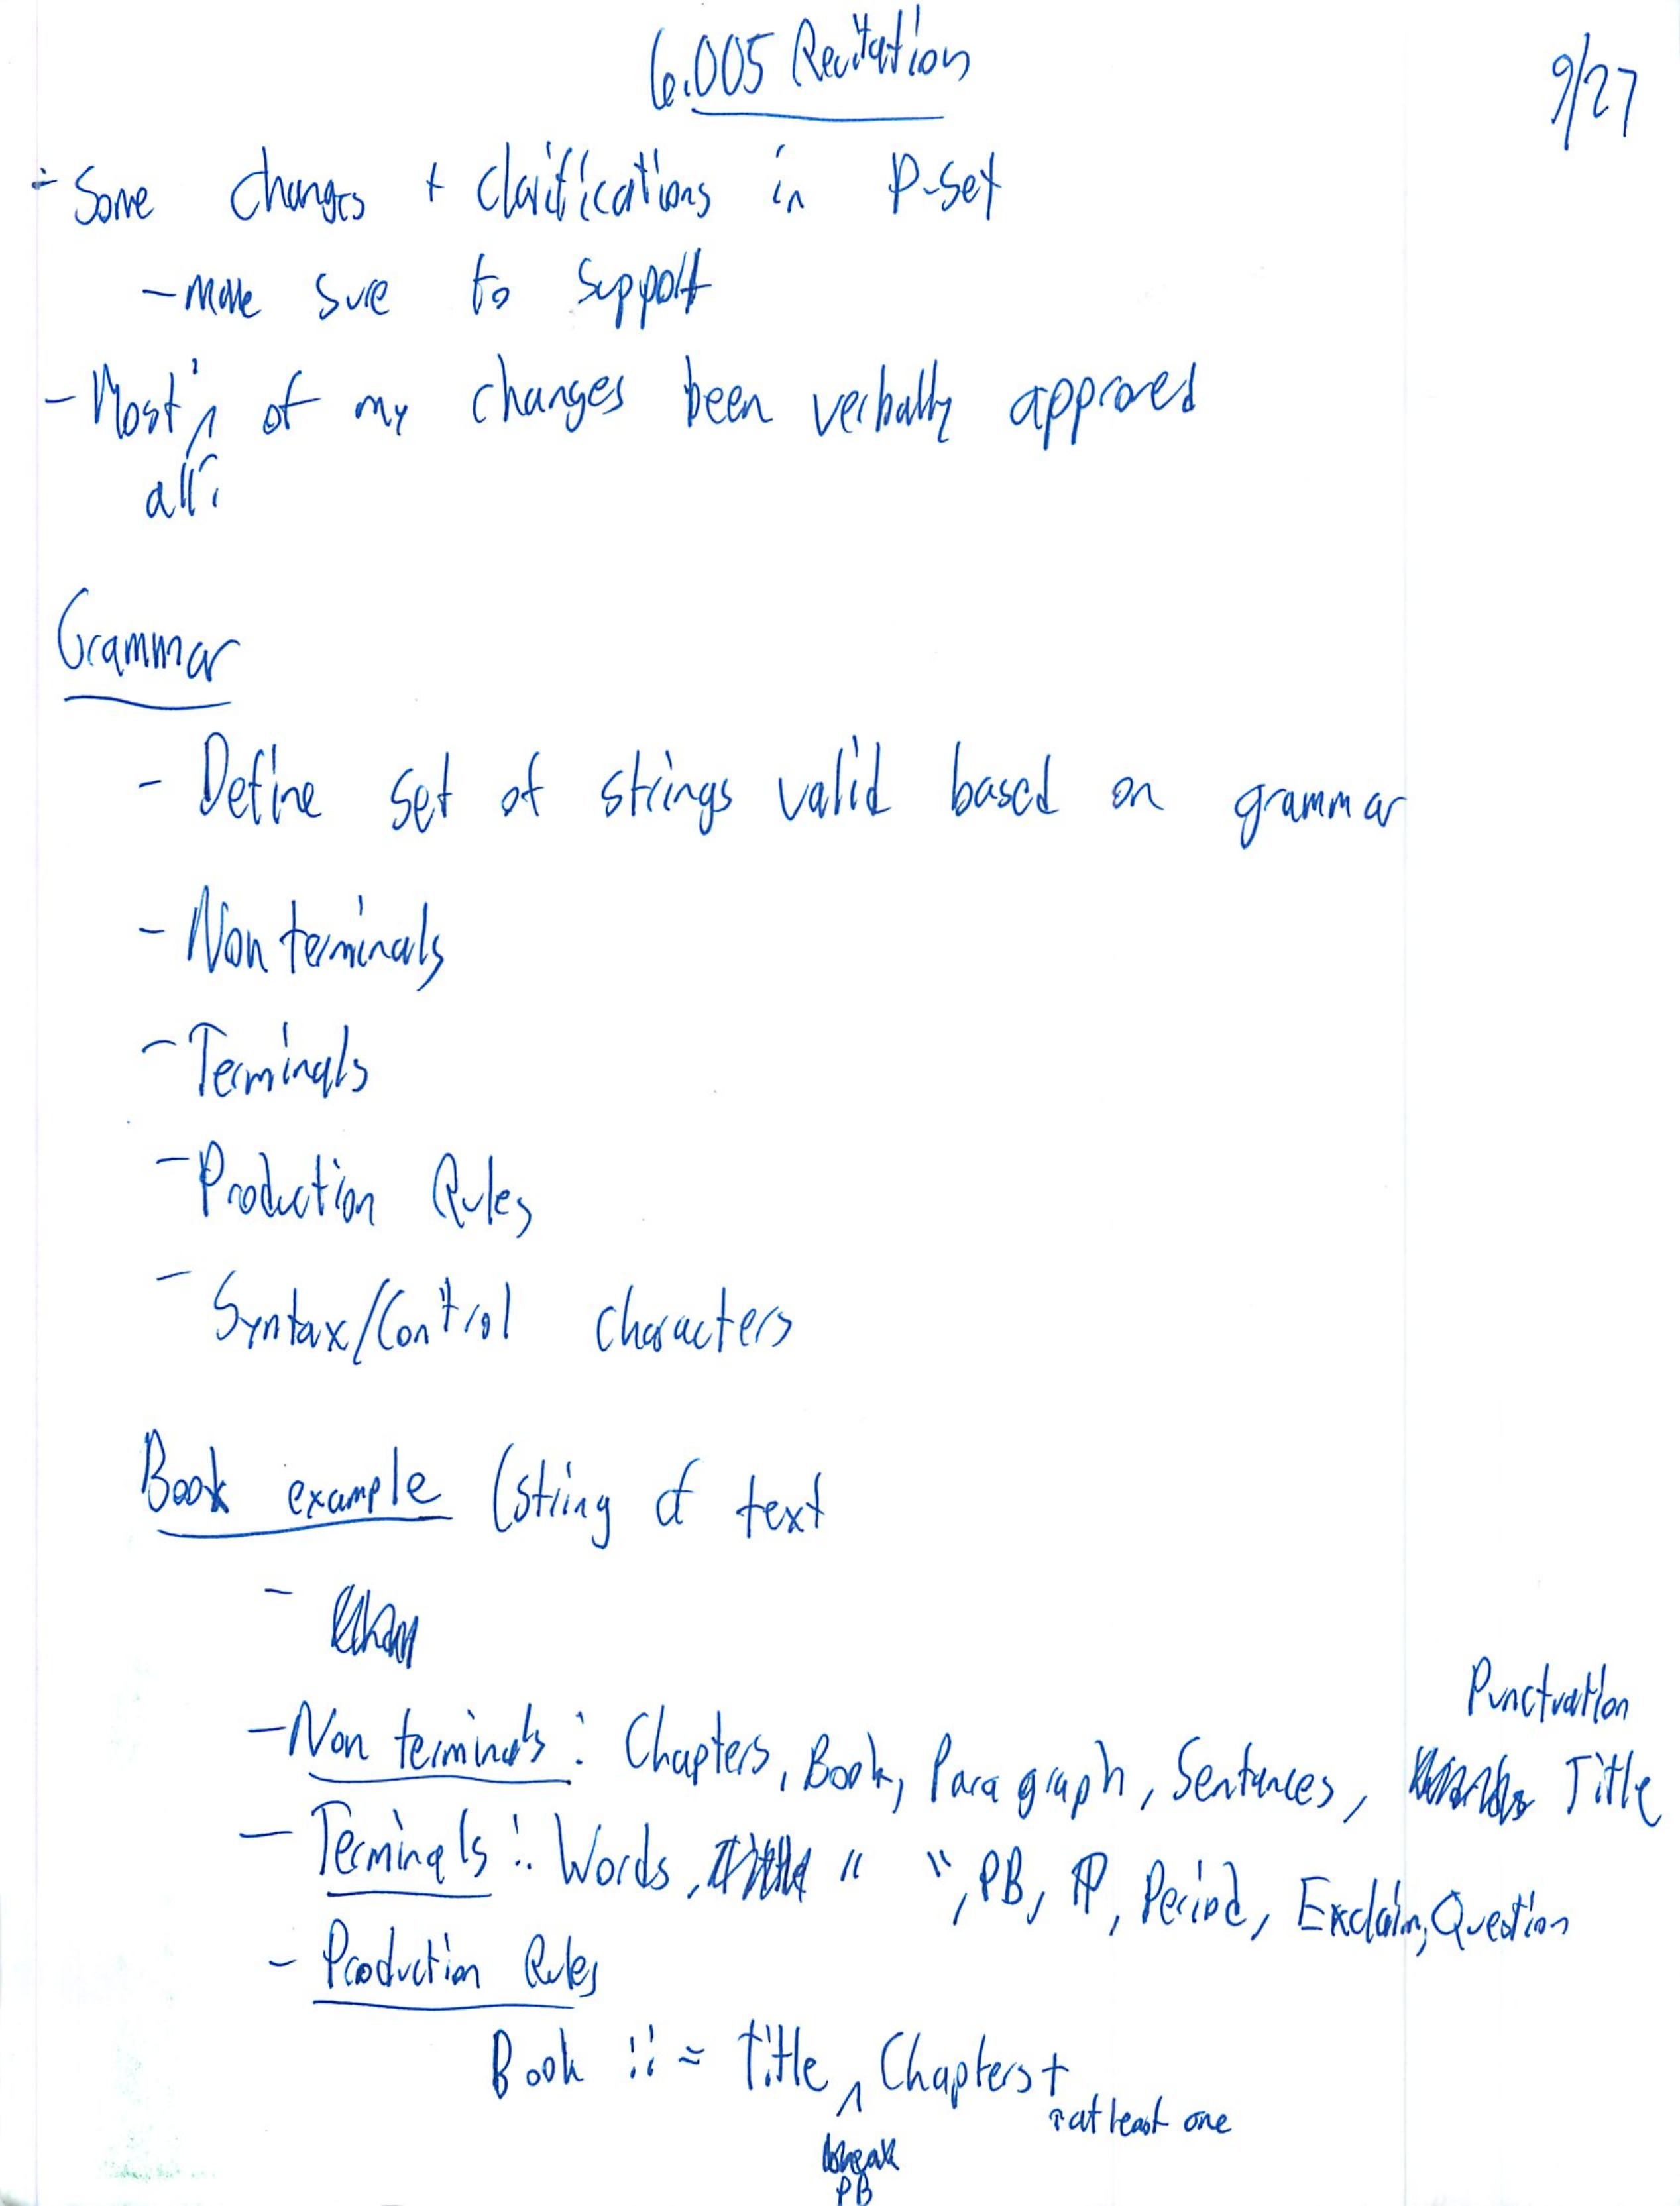 6.005 Recitation
9/27
- Some changes + clarifications in P-set
- make sure to support
- Most, of my changes been verbally approved
all?
Grammar
- Define set of strings valid based on grammar
- Non terminals
- Terminals
- Production Rules
- Syntax/Control characters
Book example (string of text
-
Punctuation
- Non terminals: Chapters, Book, Paragraph, Sentances, Title
- Terminals: Words, " ", PB, IP, Period, Exclaim, Question
- Production Rules
Book ::= Title ^ Chapters+
↑ at least one
break
PB